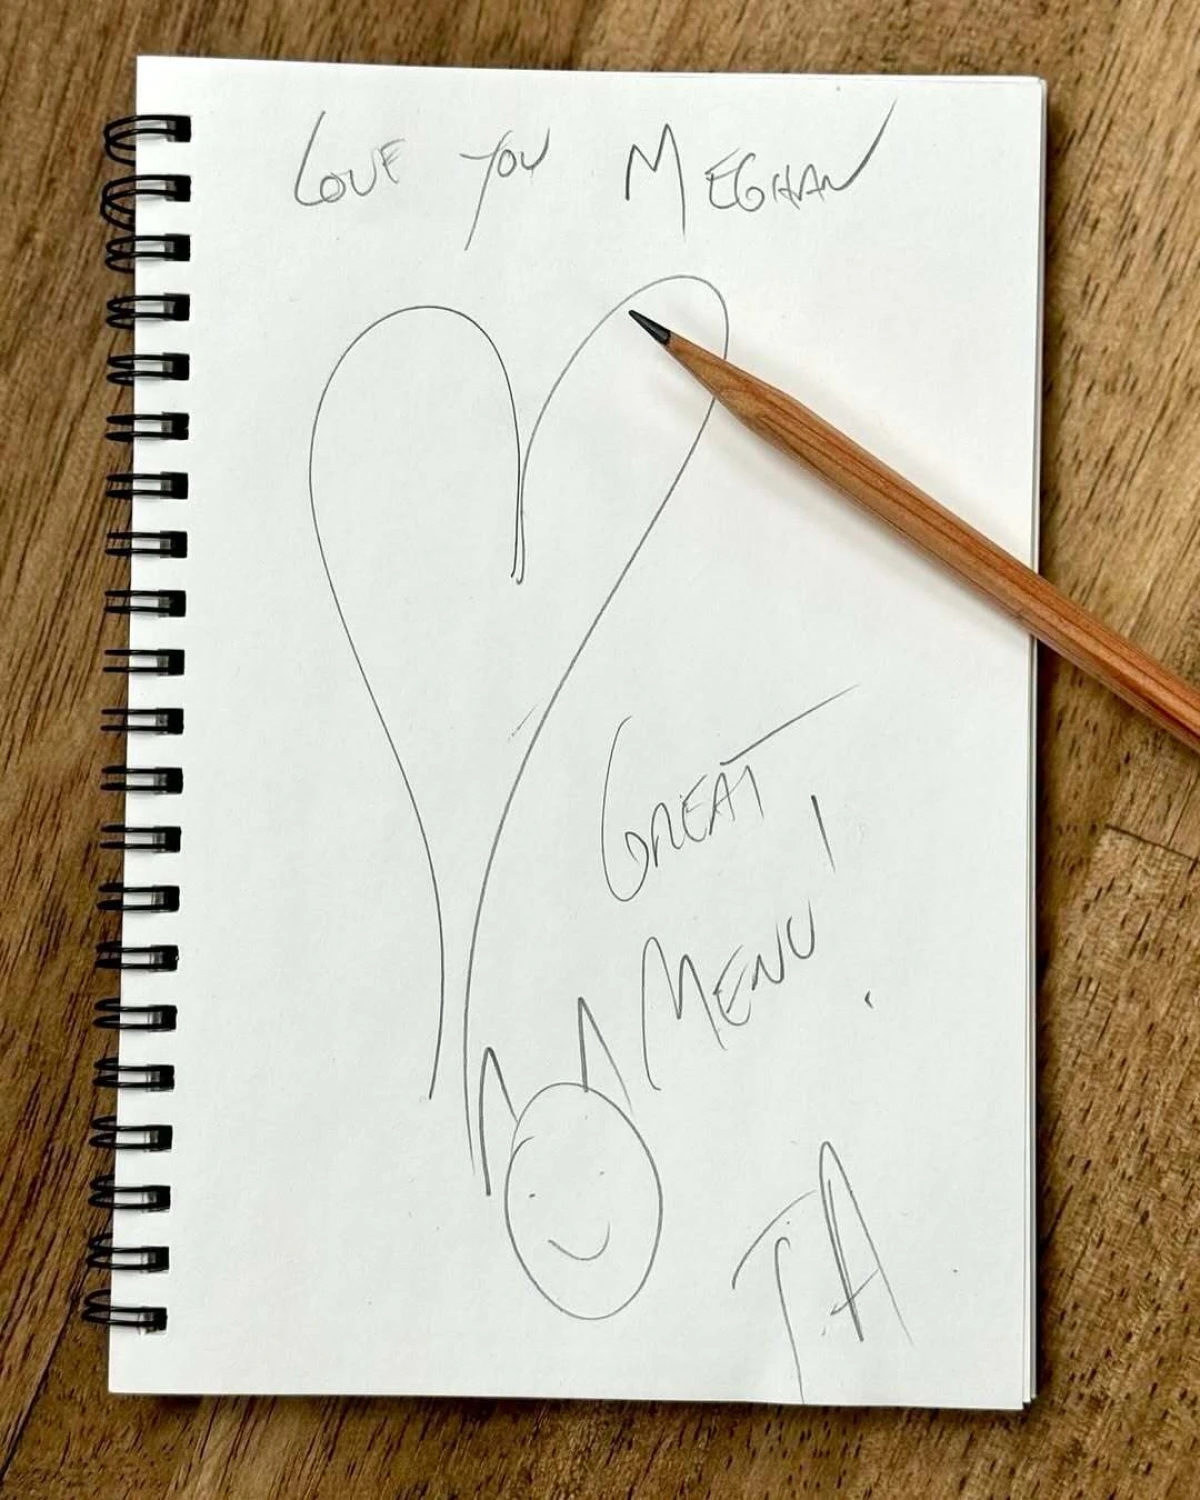 LOVE YOU MEGHAN
GREAT
MENU!
TA